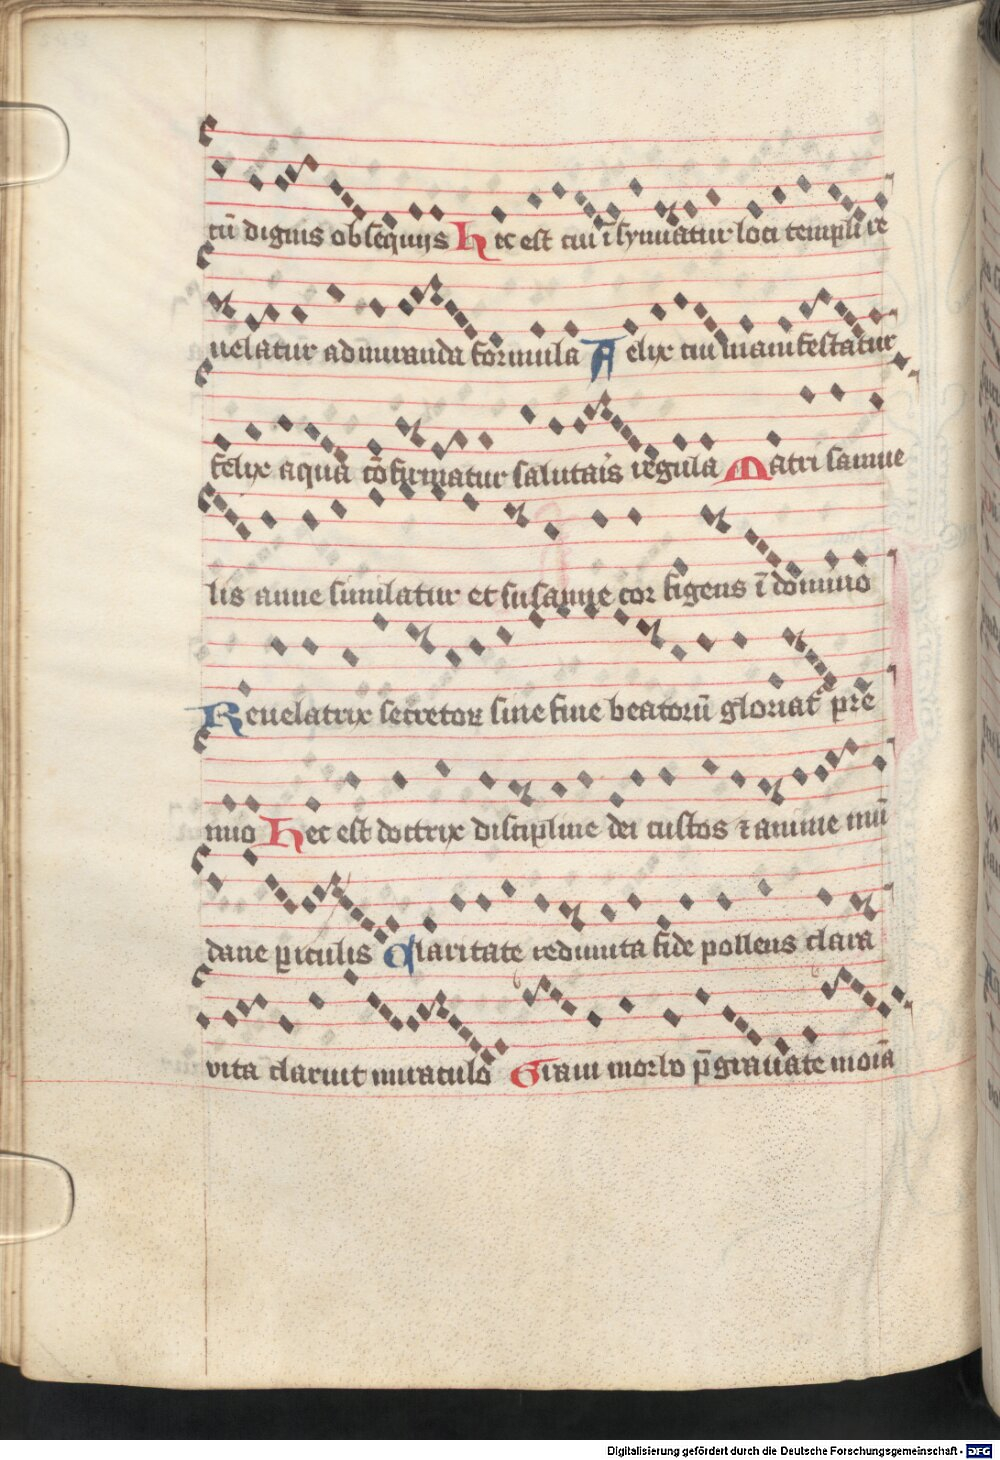 tū dignis obsequijs Hec est cui īsynuatur loci templi re
uelatur admiranda formula Felix cui manifestatur
felix aqua cōfirmatur salutaīs regula Matri samue
lis anne similatur et susanne cor figens ī domino
Reuelatrix secretoꝝ sine fine beatorū gloriat᷑ pre
mio Hec est doctrix discipline dei custos ⁊ anime mū
dane ꝑiculis Claritate redimita fide pollens clara
vita claruit miraculo Graui morbo p̄grauate moīa
Digitalisierung gefördert durch die Deutsche Forschungsgemeinschaft - DFG